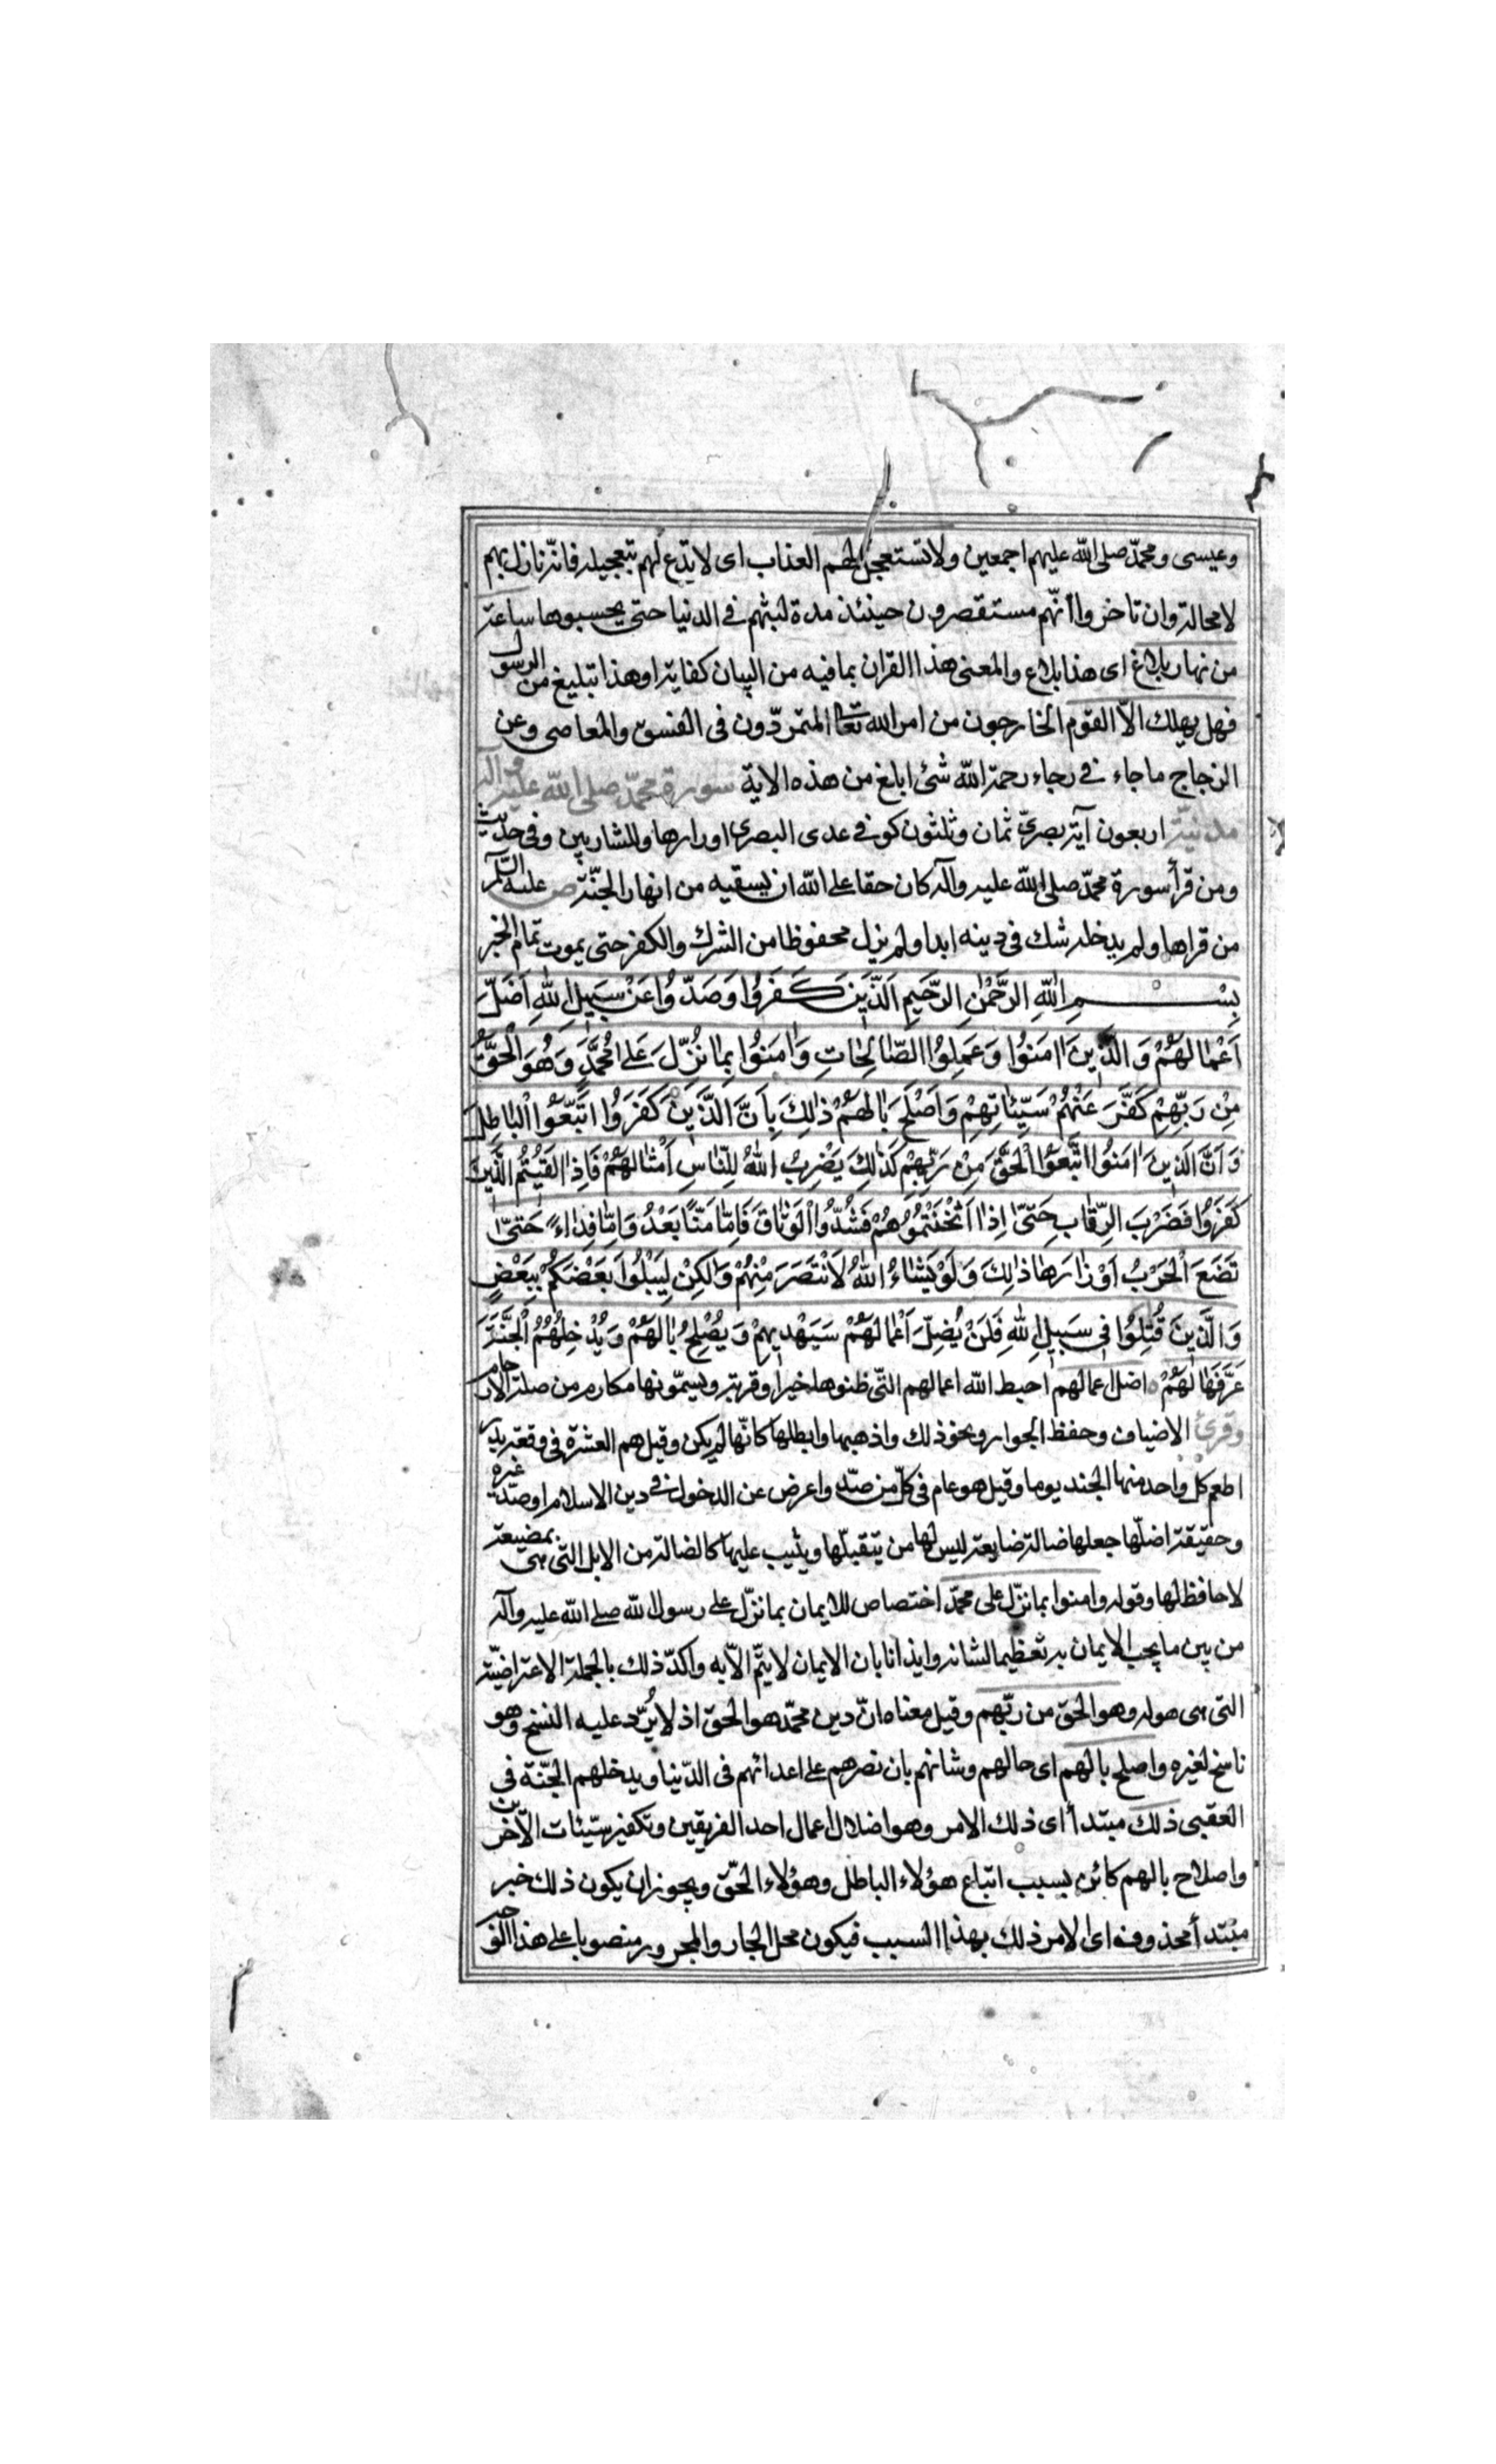 وعيسى ومحمّد صلى الله عليهم اجمعين ولا تستعجل لهم العذاب اى لا تدع لهم بتعجيله فانّه نازل بهم
لا محالة وان تاخر وا انّهم مستقصرون حينئذ مدة لبثهم فى الدنيا حتى يحسبوها ساعة
من نهار بلاغ اى هذا بلاغ والمعنى هذا القران بما فيه من البيان كفاية او هذا تبليغ من الرسول
فهل يهلك الّا القوم الخارجون من امر الله تعالى المتمرّدون فى الفسق والمعاصى وعن
الزجاج ما جاء فى رجاء رحمة الله شئ ابلغ من هذه الاية سورة محمّد صلى الله عليه واله
مدنيّة اربعون آية بصرىّ ثمان وثلثون كوفى عدى البصرى اوزارها وللشاربين وفى حديث
ومن قرأ سورة محمّد صلى الله عليه وآله كان حقا على الله ان يسقيه من انهار الجنّة ص عليه السّلم
من قراها ولم يدخله شك فى دينه ابدا ولم يزل محفوظا من الشرك والكفر حتى يموت تمام الخبر
بِسْمِ اللهِ الرَّحْمٰنِ الرَّحِيمِ اَلَّذِينَ كَفَرُوا وَصَدُّوا عَنْ سَبِيلِ اللهِ اَضَلَّ
اَعْمٰالَهُمْ وَالَّذِينَ اٰمَنُوا وَعَمِلُوا الصّٰالِحٰاتِ وَاٰمَنُوا بِمٰا نُزِّلَ عَلىٰ مُحَمَّدٍ وَهُوَ الْحَقُّ
مِنْ رَبِّهِمْ كَفَّرَ عَنْهُمْ سَيِّئٰاتِهِمْ وَاَصْلَحَ بٰالَهُمْ ذٰلِكَ بِاَنَّ الَّذِينَ كَفَرُوا اتَّبَعُوا الْبٰاطِلَ
وَاَنَّ الَّذِينَ اٰمَنُوا اتَّبَعُوا الْحَقَّ مِنْ رَبِّهِمْ كَذٰلِكَ يَضْرِبُ اللهُ لِلنّٰاسِ اَمْثٰالَهُمْ فَاِذٰا لَقِيتُمُ الَّذِينَ
كَفَرُوا فَضَرْبَ الرِّقٰابِ حَتّىٰ اِذٰا اَثْخَنْتُمُوهُمْ فَشُدُّوا الْوَثٰاقَ فَاِمّٰا مَنًّا بَعْدُ وَاِمّٰا فِدٰاءً حَتّىٰ
تَضَعَ الْحَرْبُ اَوْزٰارَهٰا ذٰلِكَ وَلَوْ يَشٰاءُ اللهُ لَانْتَصَرَ مِنْهُمْ وَلٰكِنْ لِيَبْلُوَا بَعْضَكُمْ بِبَعْضٍ
وَالَّذِينَ قُتِلُوا فِى سَبِيلِ اللهِ فَلَنْ يُضِلَّ اَعْمٰالَهُمْ سَيَهْدِيهِمْ وَيُصْلِحُ بٰالَهُمْ وَيُدْخِلُهُمُ الْجَنَّةَ
عَرَّفَهٰا لَهُمْ اضل اعمالهم احبط الله اعمالهم التّى ظنوها خيرا وقربة ويسمّونها مكارم من صلة الارحام
وقرئ الاضياف وحفظ الجوار ونحو ذلك واذهبها وابطلها كانّها لم يكن وقيل هم العشرة فى وقعة بدر
اطعم كل واحد منها الجند يوما وقيل هو عام فى كلّ من صدّ واعرض عن الدخول فى دين الاسلام او صدّ غيره
وحقيقة اضلّها جعلها ضالة ضايعة ليس لها من يتقبلّها ويثيب عليها كالضالة من الابل التى هى بمضيعة
لا حافظ لها وقوله وامنوا بما نزّل على محمّد اختصاص للايمان بما نزّل على رسول الله صلى الله عليه وآله
من بين ما يجب الايمان به تعظيما لشانه وايذانا بان الايمان لا يتمّ الّا به واكدّ ذلك بالجملة الاعتراضيّة
التى هى هوله وهو الحق من ربّهم وقيل معناه انّ دين محمّد هو الحق اذ لا يُرّد عليه النسخ وهو
ناسخ لغيره واصلح بالهم اى حالهم وشانهم بان نصرهم على اعدائهم فى الدّنيا ويدخلهم الجّنة فى
العقبى ذلك مبتدأ اى ذلك الامر وهو اضلال اعمال احد الفريقين وتكفير سيّئات الآخرين
واصلاح بالهم كائن بسبب اتباع هؤلاء الباطل وهؤلاء الحّق ويجوز ان يكون ذلك خبر
مبتدأ محذوف اى الامر ذلك بهذا السبب فيكون محل الجار والمجرور منصوبا على هذا